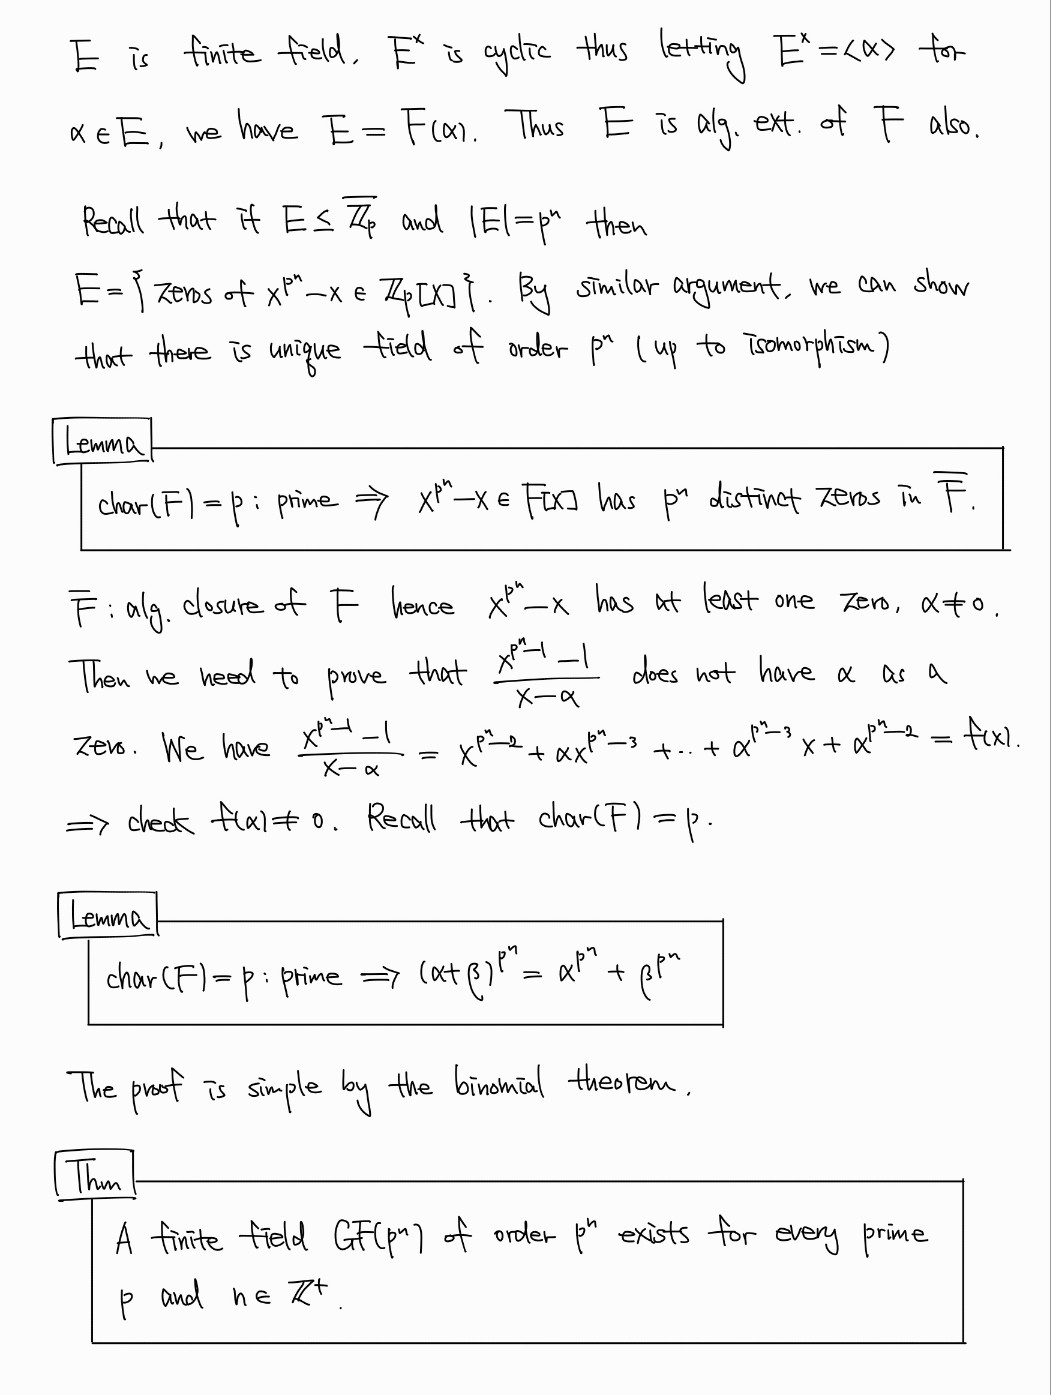 E is finite field. E^× is cyclic thus letting E^× = <α> for
α ∈ E, we have E = F(α). Thus E is alg. ext. of F also.
Recall that if E ≤ \overline{ℤ_p} and |E| = p^n then
E = { zeros of x^{p^n} - x ∈ ℤ_p[x] }. By similar argument, we can show
that there is unique field of order p^n (up to isomorphism)
Lemma
char(F) = p : prime ⇒ x^{p^n} - x ∈ F[x] has p^n distinct zeros in \overline{F}.
\overline{F} : alg. closure of F hence x^{p^n} - x has at least one zero, α ≠ 0.
Then we need to prove that \frac{x^{p^n-1} - 1}{x - α} does not have α as a
zero. We have \frac{x^{p^n-1} - 1}{x - α} = x^{p^n-2} + αx^{p^n-3} + ·· + α^{p^n-3} x + α^{p^n-2} = f(x).
⇒ check f(α) ≠ 0. Recall that char(F) = p.
Lemma
char(F) = p : prime ⇒ (α+β)^{p^n} = α^{p^n} + β^{p^n}
The proof is simple by the binomial theorem.
Thm
A finite field GF(p^n) of order p^n exists for every prime
p and n ∈ ℤ^+.